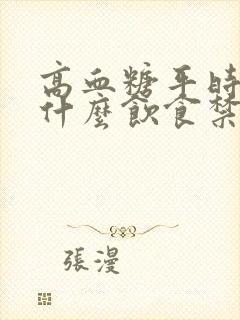 高血糖平時
什麼飲食禁
張漫